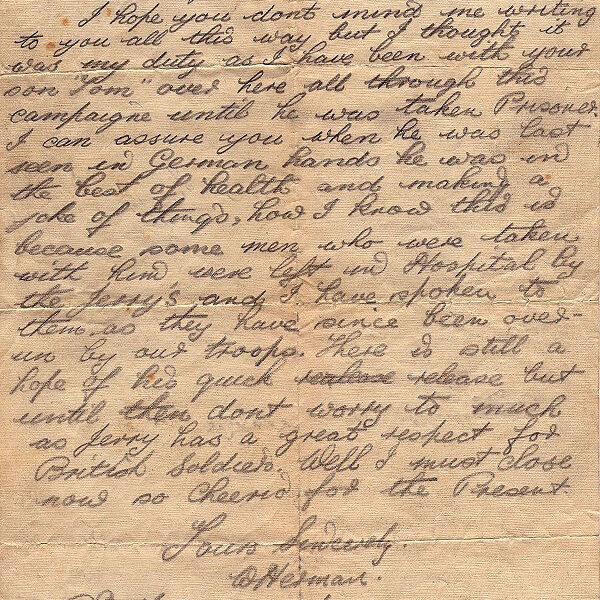 I hope you dont mind me writing
to you all this way but I thought it
was my duty as I have been with your
son "Tom" over here all through this
campaigne until he was taken Prisoner.
I can assure you when he was last
seen in German hands he was in
the best of health and making a
joke of things, how I know this is
because some men who were taken
with him were left in Hospital by
the Jerry's and I have spoken to
them as they have since been over-
un by our troops. There is still a
hope of his quick release but
until then dont worry to much
as Jerry has a great respect for
British Soldiers. Well I must close
now so Cheerio for the Present.
Yours Sincerely.